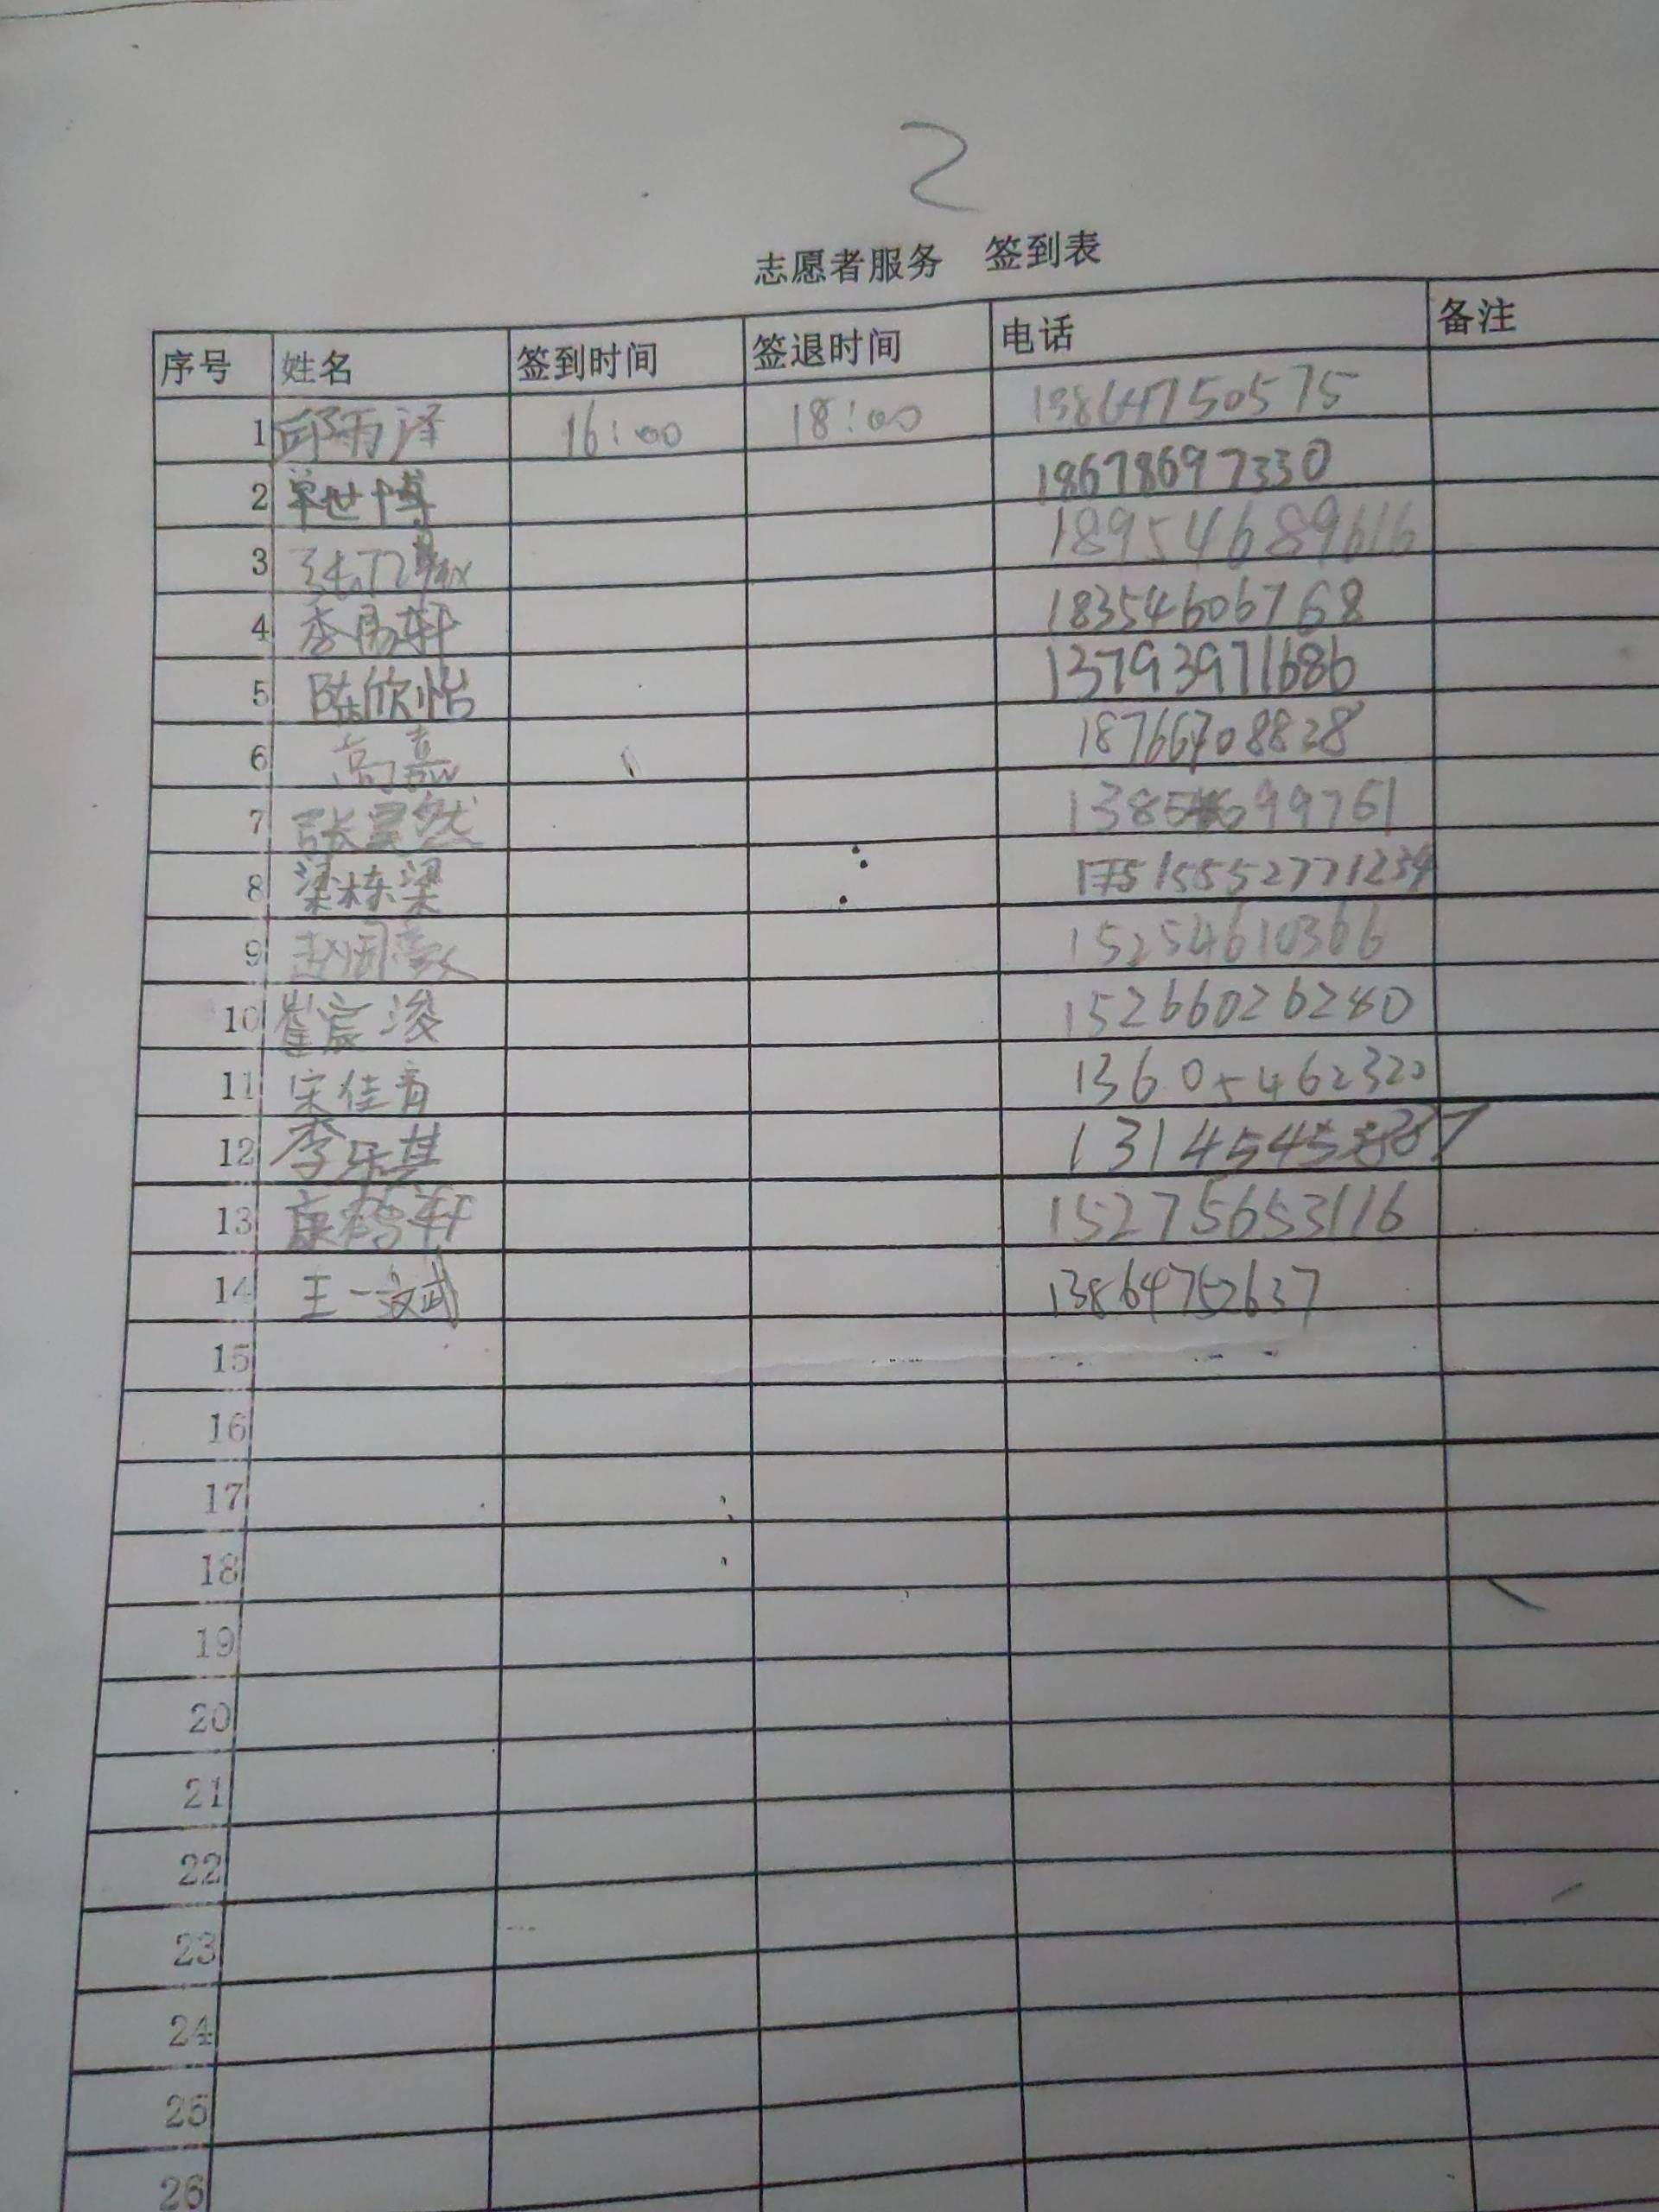 2
志愿者服务 签到表
序号 姓名 签到时间 签退时间 电话 备注
1 邱雨泽 16:00 18:00 13864750575
2 单世博 18678697330
3 18954689616
4 李易轩 18354606768
5 陈欣怡 13793971686
6 高嘉 18766708828
7 张昊然 99761
8 梁栋梁 15552771234
9 15254610366
10 崔宸浚 15266026240
11 宋佳音 13605462320
12 李乐其 1314545
13 康皓轩 15275653116
14 王一 13864752637
15
16
17
18
19
20
21
22
23
24
25
26